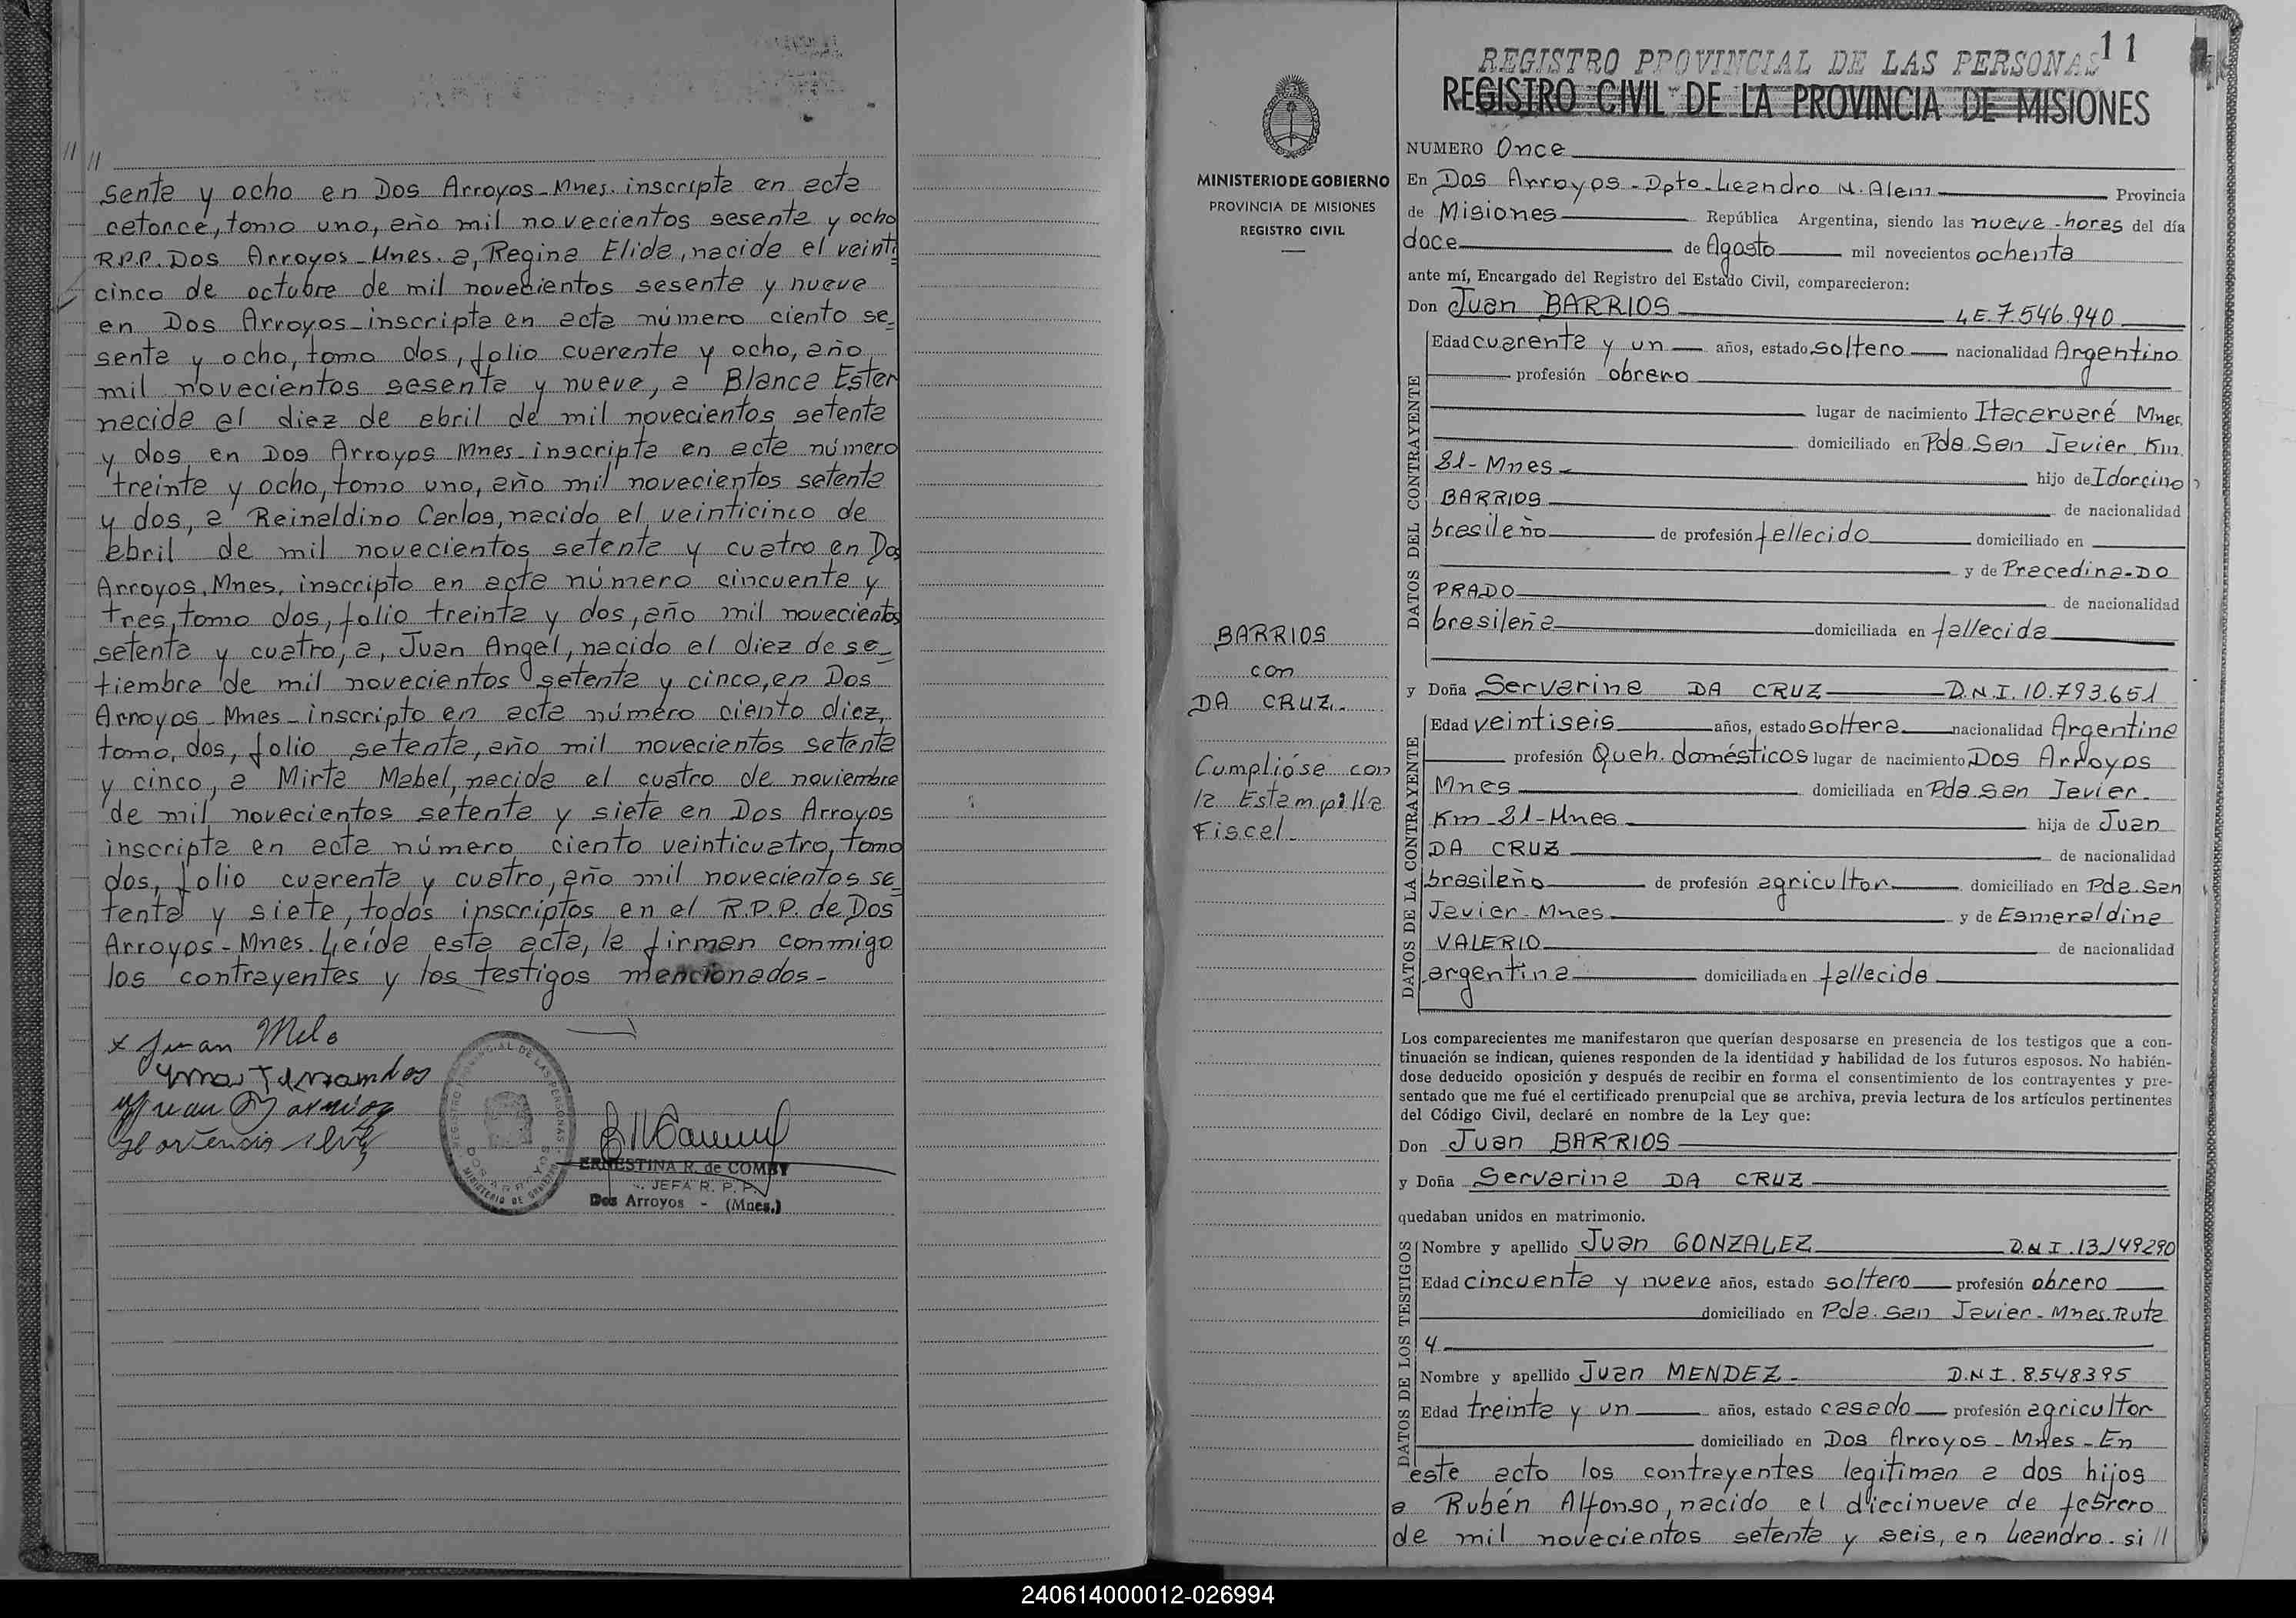 11 11
sente y ocho en Dos Arroyos-Mnes. inscripta en acta
catorce, tomo uno, año mil novecientos sesenta y ocho
R.P.P. Dos Arroyos-Mnes. a, Regina Elida, nacida el veinti
cinco de octubre de mil novecientos sesenta y nueve
en Dos Arroyos-inscripta en acta número ciento se_
senta y ocho, tomo dos, folio cuarenta y ocho, año
mil novecientos sesenta y nueve, a Blanca Ester
nacida el diez de abril de mil novecientos setenta
y dos en Dos Arroyos-Mnes-inscripta en acta número
treinta y ocho, tomo uno, año mil novecientos setenta
y dos, a Reinaldino Carlos, nacido el veinticinco de
abril de mil novecientos setenta y cuatro en Dos
Arroyos, Mnes, inscripto en acta número cincuenta y
tres, tomo dos, folio treinta y dos, año mil novecientos
setenta y cuatro, a, Juan Angel, nacido el diez de se_
tiembre de mil novecientos setenta y cinco, en Dos
Arroyos-Mnes-inscripto en acta número ciento diez,
tomo, dos, folio setenta, año mil novecientos setenta
y cinco, a Mirta Mabel, nacida el cuatro de noviembre
de mil novecientos setenta y siete en Dos Arroyos
inscripta en acta número ciento veinticuatro, tomo
dos, folio cuarenta y cuatro, año mil novecientos se_
tenta y siete, todos inscriptos en el R.P.P. de Dos
Arroyos-Mnes. Leída esta acta, la firman conmigo
los contrayentes y los testigos mencionados-
x Juan Melo
Juan Barrios
ERNESTINA R. de COMBY
JEFA R. P. P.
Dos Arroyos - (Mnes.)
11
REGISTRO PROVINCIAL DE LAS PERSONAS
REGISTRO CIVIL DE LA PROVINCIA DE MISIONES
MINISTERIO DE GOBIERNO
PROVINCIA DE MISIONES
REGISTRO CIVIL
BARRIOS
con
DA CRUZ.-
Cumplióse con
la Estampilla
Fiscal-
NUMERO Once
En Dos Arroyos-Dpto-Leandro N. Alem Provincia
de Misiones República Argentina, siendo las nueve-horas del día
doce de Agosto mil novecientos ochenta
ante mí, Encargado del Registro del Estado Civil, comparecieron:
Don Juan BARRIOS L.E. 7.546.940
DATOS DEL CONTRAYENTE
Edad cuarenta y un años, estado soltero nacionalidad Argentino
profesión obrero
lugar de nacimiento Itacaruaré Mnes
domiciliado en Pda. San Javier Km
21-Mnes- hijo de Idorcino
BARRIOS de nacionalidad
brasileño de profesión fallecido domiciliado en
y de Pracedina-DO
PRADO de nacionalidad
brasileña domiciliada en fallecida
y Doña Servarina DA CRUZ D.N.I. 10.793.651
DATOS DE LA CONTRAYENTE
Edad veintiseis años, estado soltera nacionalidad Argentina
profesión Queh. domésticos lugar de nacimiento Dos Arroyos
Mnes domiciliada en Pda San Javier-
Km-21-Mnes hija de Juan
DA CRUZ de nacionalidad
brasileño de profesión agricultor domiciliado en Pda. San
Javier-Mnes y de Esmeraldina
VALERIO de nacionalidad
argentina domiciliada en fallecida
Los comparecientes me manifestaron que querían desposarse en presencia de los testigos que a con-
tinuación se indican, quienes responden de la identidad y habilidad de los futuros esposos. No habién-
dose deducido oposición y después de recibir en forma el consentimiento de los contrayentes y pre-
sentado que me fué el certificado prenupcial que se archiva, previa lectura de los artículos pertinentes
del Código Civil, declaré en nombre de la Ley que:
Don Juan BARRIOS
y Doña Servarina DA CRUZ
quedaban unidos en matrimonio.
DATOS DE LOS TESTIGOS
Nombre y apellido Juan GONZALEZ D.N.I. 13.149290
Edad cincuenta y nueve años, estado soltero profesión obrero
domiciliado en Pda. San Javier-Mnes. Ruta
4
Nombre y apellido Juan MENDEZ- D.N.I. 8.548395
Edad treinta y un años, estado casado profesión agricultor
domiciliado en Dos Arroyos-Mnes-En
este acto los contrayentes legitiman a dos hijos
a Rubén Alfonso, nacido el diecinueve de febrero
de mil novecientos setenta y seis, en Leandro. si 11
240614000012-026994